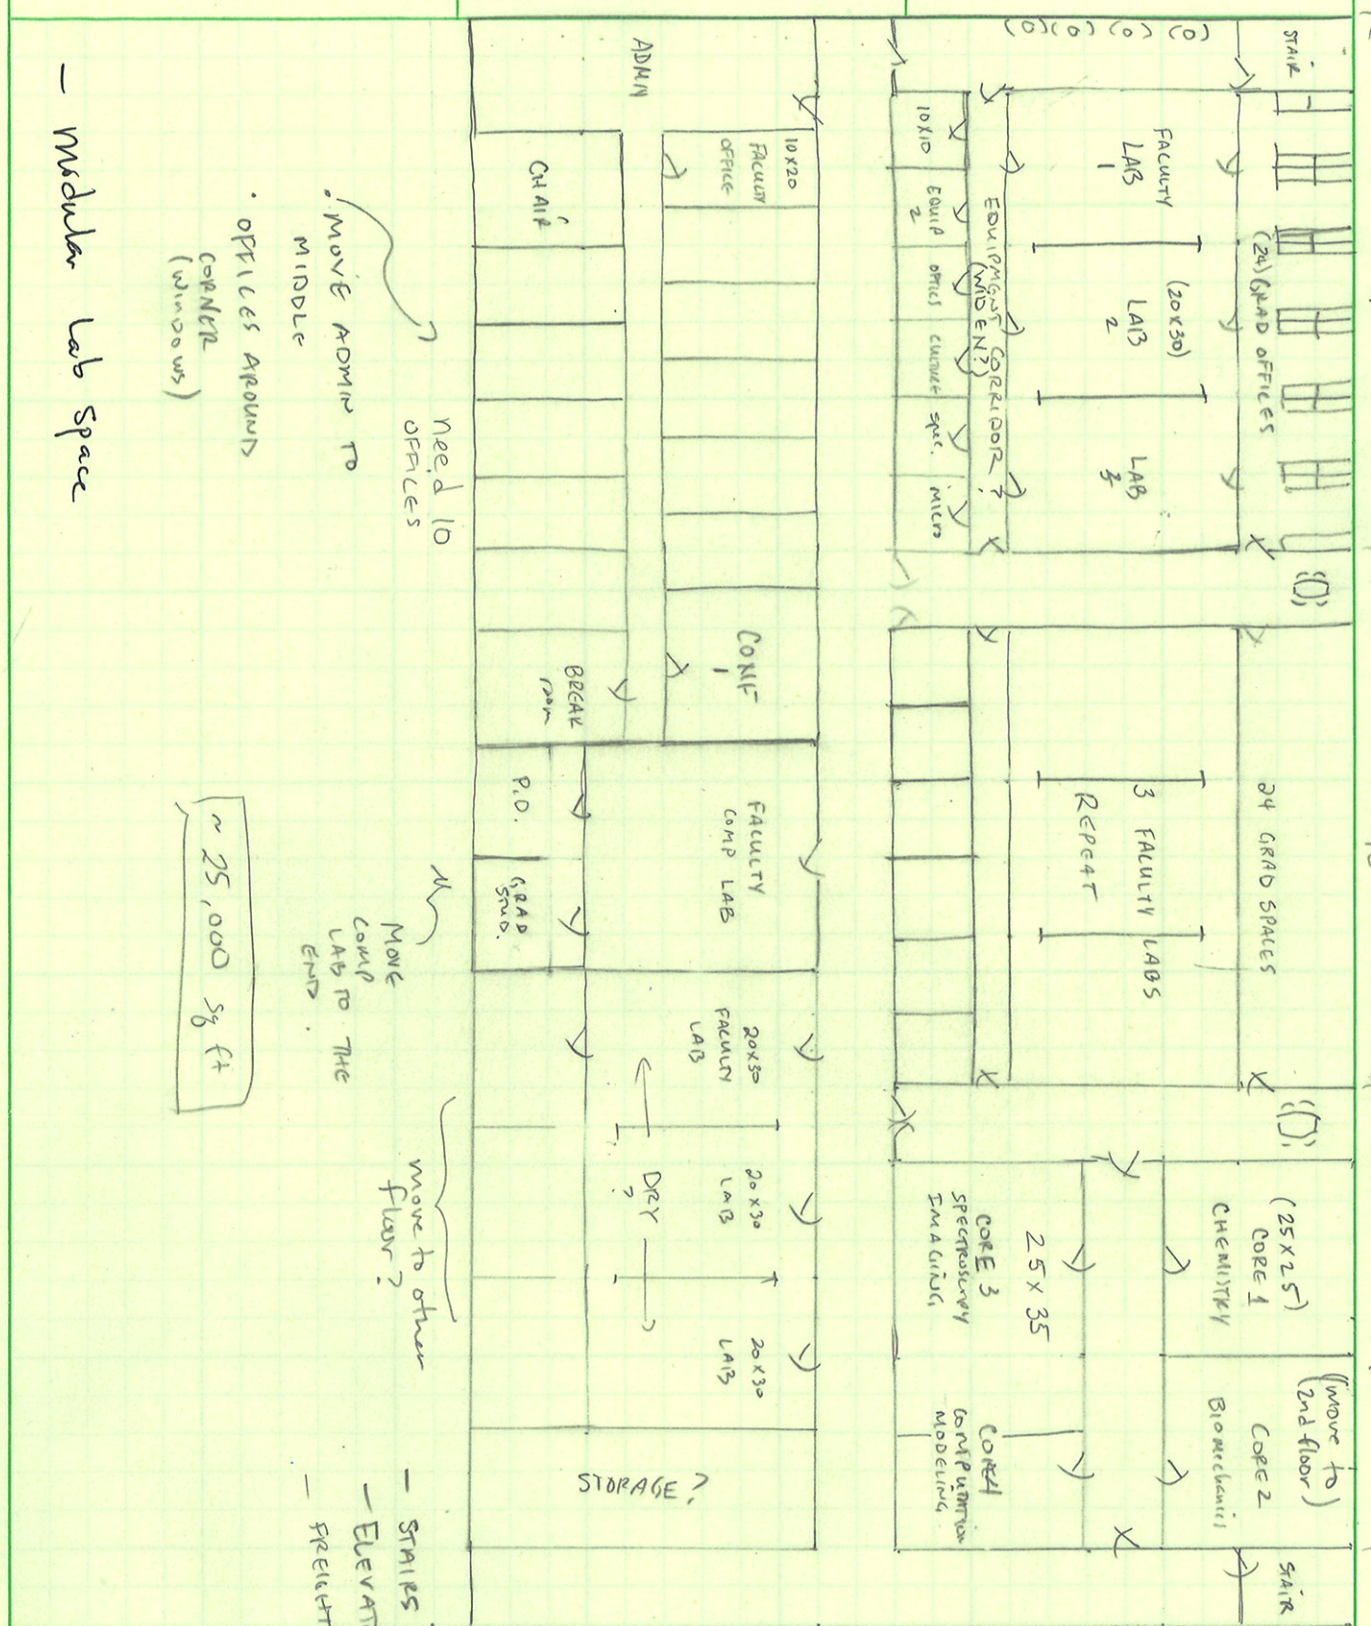 STAIR
(24) GRAD OFFICES
FACULTY
LAB
1
(20x30)
LAB
2
LAB
3
EQUIPMENT CORRIDOR?
(WIDEN?)
10x10
EQUIP
2
OPTICS
CULTURE
spec.
MICRO
24 GRAD SPACES
3 FACULTY LABS
REPEAT
(25x25)
CORE 1
CHEMISTRY
(move to
2nd floor)
CORE 2
Biomechanics
STAIR
25 x 35
CORE 3
SPECTROSCOPY
IMAGING
CORE 4
COMPUTATION
MODELING
ADMN
10x20
FACULTY
OFFICE
CONF
1
CHAIR
BREAK
room
FACULTY
COMP LAB
P.D.
GRAD
STUD.
20x30
FACULTY
LAB
20x30
LAB
20x30
LAB
DRY
?
STORAGE?
need 10
OFFICES
• MOVE ADMIN TO
MIDDLE
• OFFICES AROUND
CORNER
(WINDOWS)
MOVE
COMP
LAB TO THE
END.
move to other
floor?
- STAIRS
- ELEVAT
- FREIGHT
~ 25,000 sq ft
- Modular Lab Space